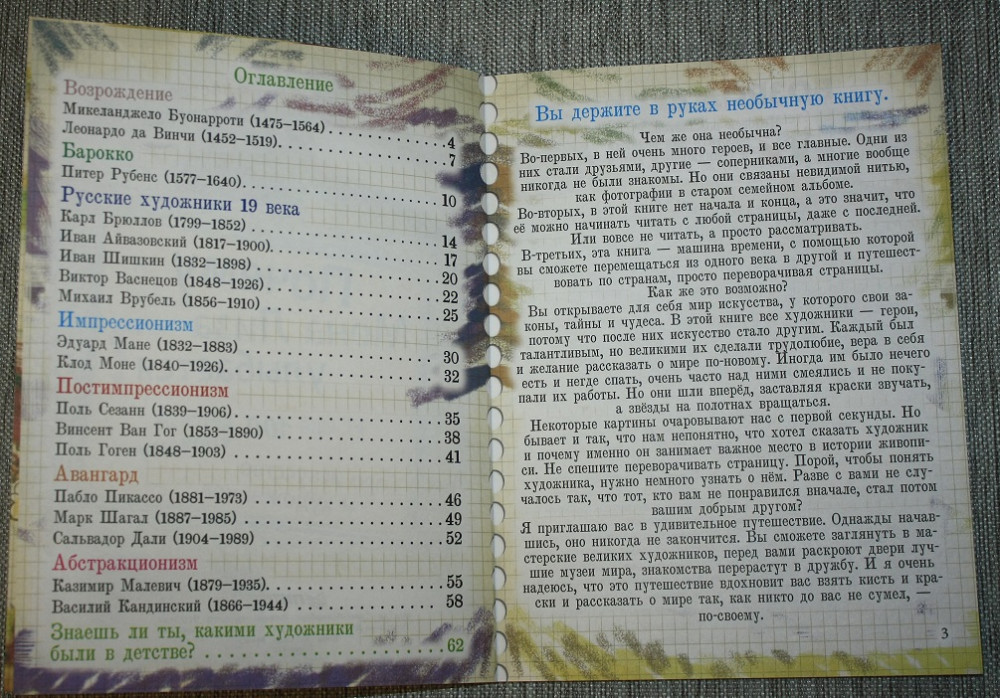 Оглавление
Возрождение
Микеланджело Буонарроти (1475–1564) . . . . . . . . . . . . . 4
Леонардо да Винчи (1452–1519). . . . . . . . . . . . . . . . . . 7
Барокко
Питер Рубенс (1577–1640). . . . . . . . . . . . . . . . . . . . . . 10
Русские художники 19 века
Карл Брюллов (1799–1852) . . . . . . . . . . . . . . . . . . . . . 14
Иван Айвазовский (1817–1900). . . . . . . . . . . . . . . . . . 17
Иван Шишкин (1832–1898) . . . . . . . . . . . . . . . . . . . . 20
Виктор Васнецов (1848–1926) . . . . . . . . . . . . . . . . . . . 22
Михаил Врубель (1856–1910) . . . . . . . . . . . . . . . . . . . 25
Импрессионизм
Эдуард Мане (1832–1883) . . . . . . . . . . . . . . . . . . . . . 30
Клод Моне (1840–1926). . . . . . . . . . . . . . . . . . . . . . . 32
Постимпрессионизм
Поль Сезанн (1839–1906). . . . . . . . . . . . . . . . . . . . . . 35
Винсент Ван Гог (1853–1890) . . . . . . . . . . . . . . . . . . 38
Поль Гоген (1848–1903) . . . . . . . . . . . . . . . . . . . . . . 41
Авангард
Пабло Пикассо (1881–1973) . . . . . . . . . . . . . . . . . . . 46
Марк Шагал (1887–1985) . . . . . . . . . . . . . . . . . . . . . 49
Сальвадор Дали (1904–1989) . . . . . . . . . . . . . . . . . . 52
Абстракционизм
Казимир Малевич (1879–1935). . . . . . . . . . . . . . . . . . 55
Василий Кандинский (1866–1944) . . . . . . . . . . . . . . . 58
Знаешь ли ты, какими художники
были в детстве? . . . . . . . . . . . . . . . . . . . . . . . . 62
Вы держите в руках необычную книгу.
Чем же она необычна?
Во-первых, в ней очень много героев, и все главные. Одни из
них стали друзьями, другие — соперниками, а многие вообще
никогда не были знакомы. Но они связаны невидимой нитью,
как фотографии в старом семейном альбоме.
Во-вторых, в этой книге нет начала и конца, а это значит, что
её можно начинать читать с любой страницы, даже с последней.
Или вовсе не читать, а просто рассматривать.
В-третьих, эта книга — машина времени, с помощью которой
вы сможете перемещаться из одного века в другой и путешест-
вовать по странам, просто переворачивая страницы.
Как же это возможно?
Вы открываете для себя мир искусства, у которого свои за-
коны, тайны и чудеса. В этой книге все художники — герои,
потому что после них искусство стало другим. Каждый был
талантливым, но великими их сделали трудолюбие, вера в себя
и желание рассказать о мире по-новому. Иногда им было нечего
есть и негде спать, очень часто над ними смеялись и не поку-
пали их работы. Но они шли вперёд, заставляя краски звучать,
а звёзды на полотнах вращаться.
Некоторые картины очаровывают нас с первой секунды. Но
бывает и так, что нам непонятно, что хотел сказать художник
и почему именно он занимает важное место в истории живопи-
си. Не спешите переворачивать страницу. Порой, чтобы понять
художника, нужно немного узнать о нём. Разве с вами не слу-
чалось так, что тот, кто вам не понравился вначале, стал потом
вашим добрым другом?
Я приглашаю вас в удивительное путешествие. Однажды начав-
шись, оно никогда не закончится. Вы сможете заглянуть в ма-
стерские великих художников, перед вами раскроют двери луч-
шие музеи мира, знакомства перерастут в дружбу. И я очень
надеюсь, что это путешествие вдохновит вас взять кисть и кра-
ски и рассказать о мире так, как никто до вас не сумел, —
по-своему.
3